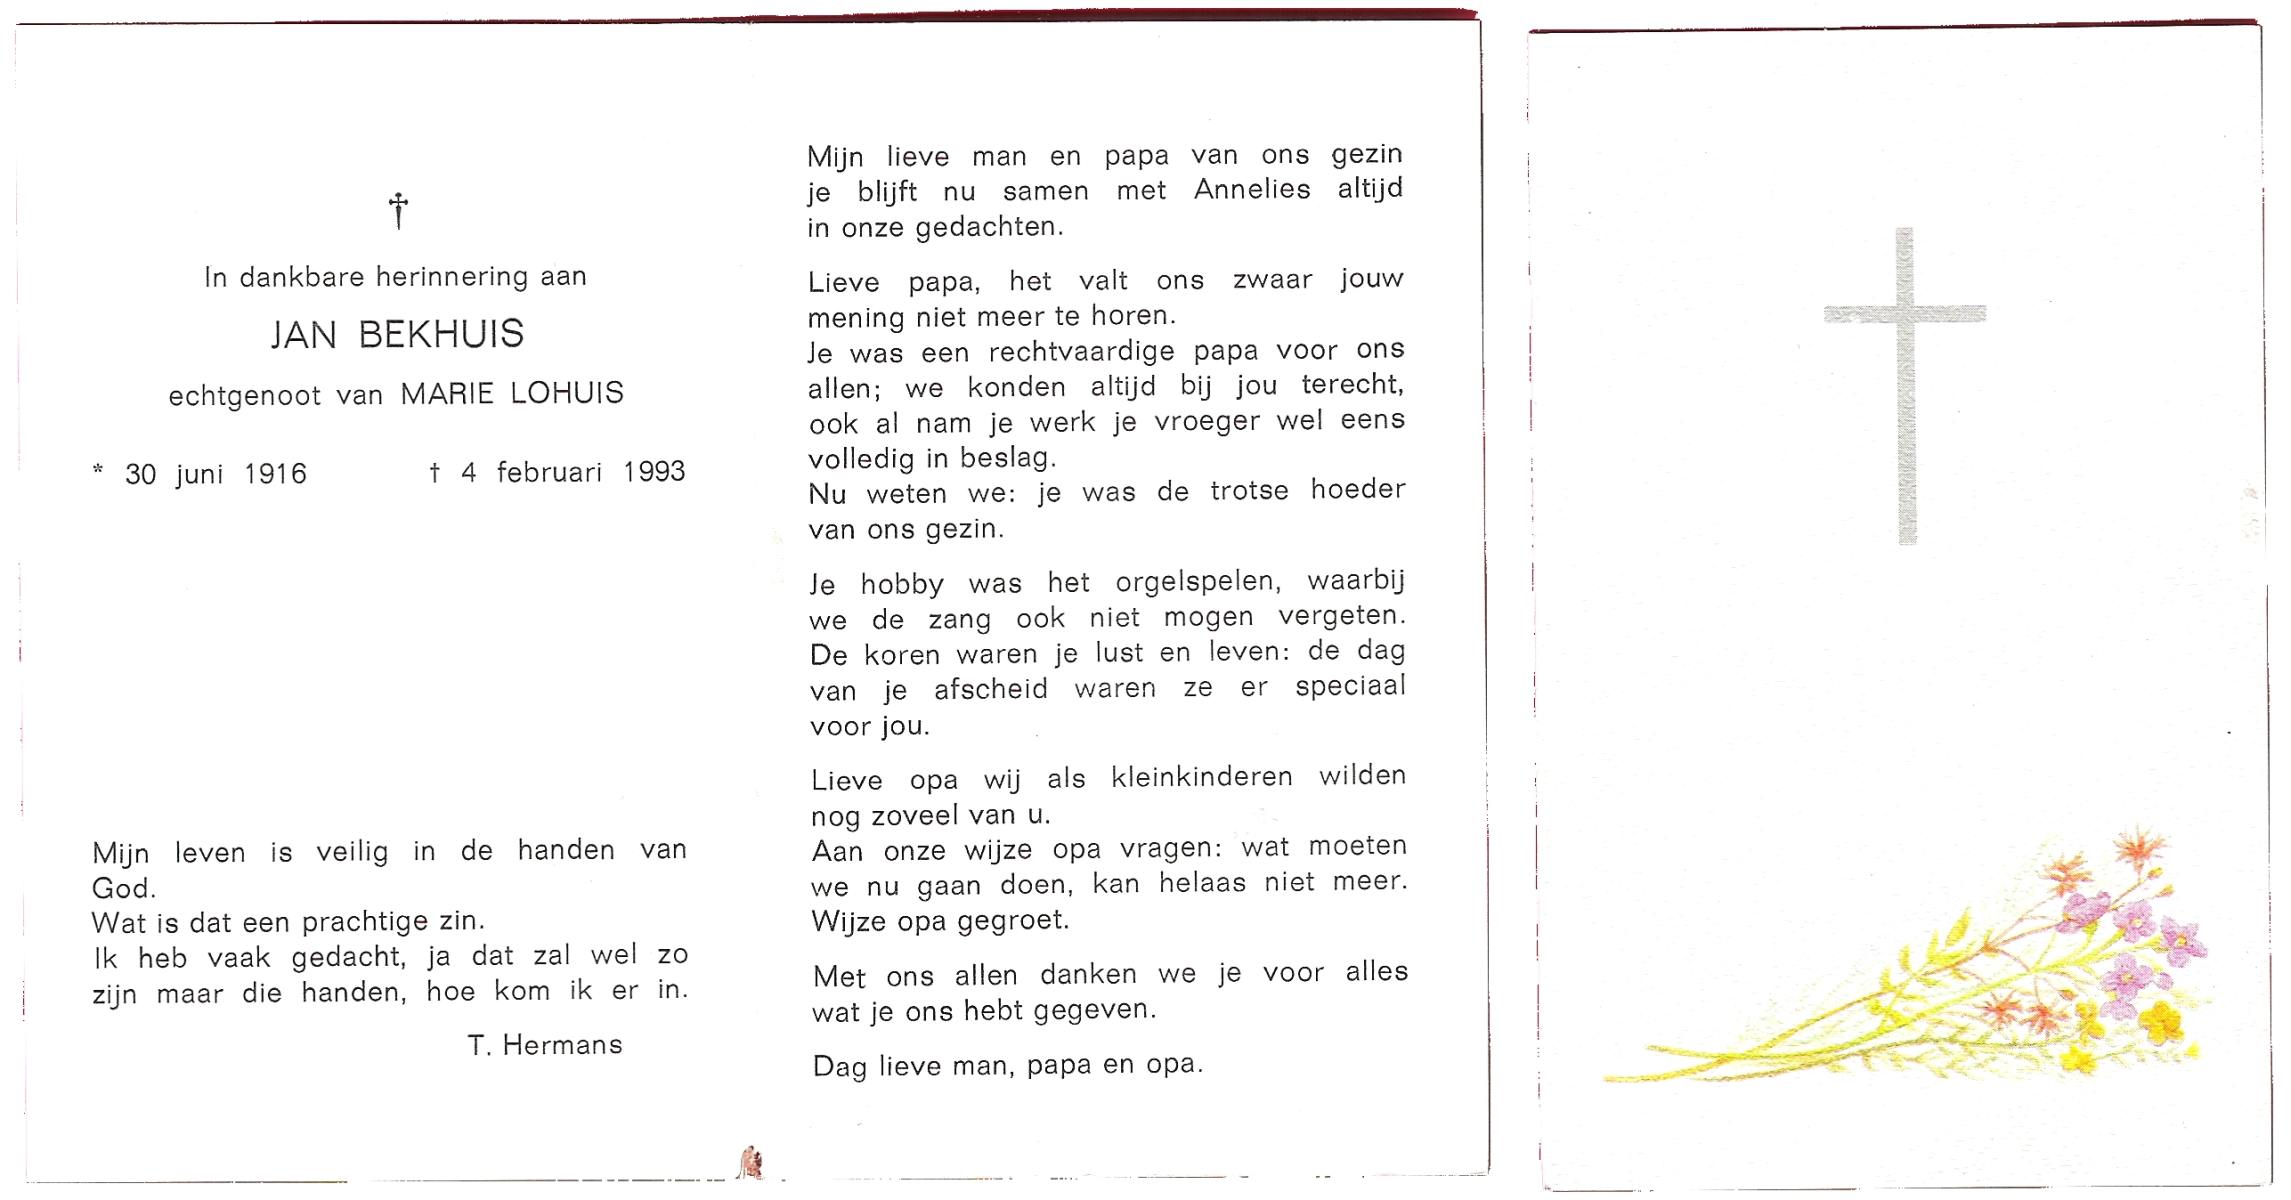 †
In dankbare herinnering aan
JAN BEKHUIS
echtgenoot van MARIE LOHUIS
* 30 juni 1916 † 4 februari 1993
Mijn leven is veilig in de handen van
God.
Wat is dat een prachtige zin.
Ik heb vaak gedacht, ja dat zal wel zo
zijn maar die handen, hoe kom ik er in.
T. Hermans
Mijn lieve man en papa van ons gezin
je blijft nu samen met Annelies altijd
in onze gedachten.
Lieve papa, het valt ons zwaar jouw
mening niet meer te horen.
Je was een rechtvaardige papa voor ons
allen; we konden altijd bij jou terecht,
ook al nam je werk je vroeger wel eens
volledig in beslag.
Nu weten we: je was de trotse hoeder
van ons gezin.
Je hobby was het orgelspelen, waarbij
we de zang ook niet mogen vergeten.
De koren waren je lust en leven: de dag
van je afscheid waren ze er speciaal
voor jou.
Lieve opa wij als kleinkinderen wilden
nog zoveel van u.
Aan onze wijze opa vragen: wat moeten
we nu gaan doen, kan helaas niet meer.
Wijze opa gegroet.
Met ons allen danken we je voor alles
wat je ons hebt gegeven.
Dag lieve man, papa en opa.